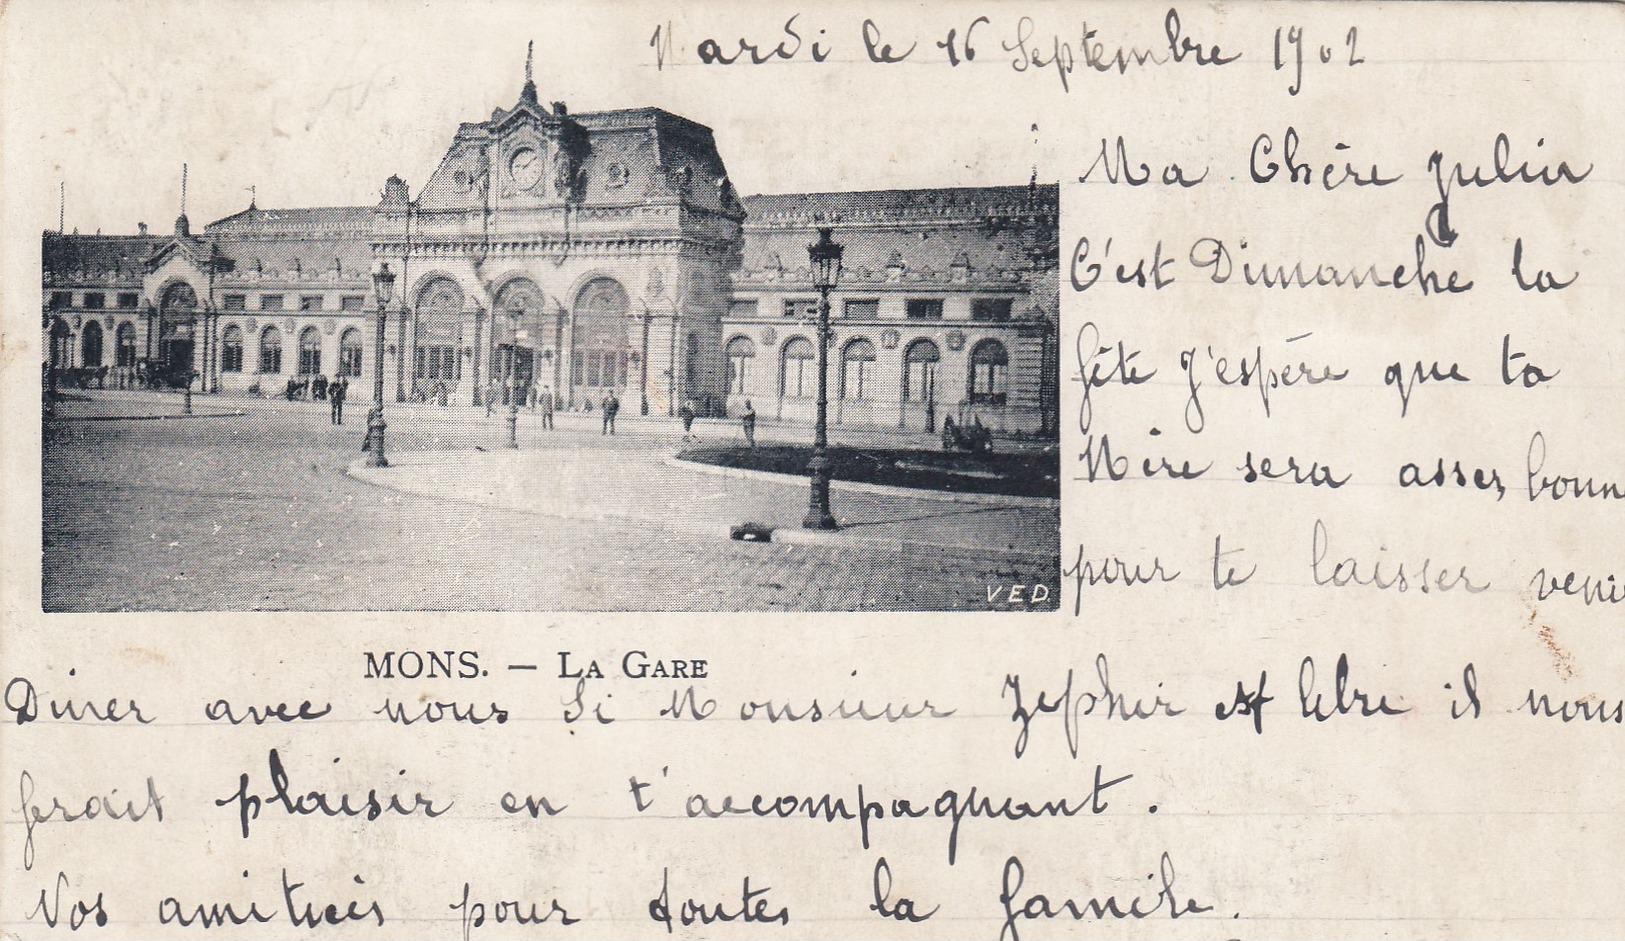 Mardi le 16 Septembre 1902
Ma Chère Julia
C'est Dimanche la
fête J'espère que ta
Mère sera assez bonne
pour te laisser venir
V E D.
MONS. — LA GARE
Diner avec nous Si Monsieur Zephir est libre il nous
ferait plaisir en t'accompagnant.
Nos amitiées pour toutes la famille.